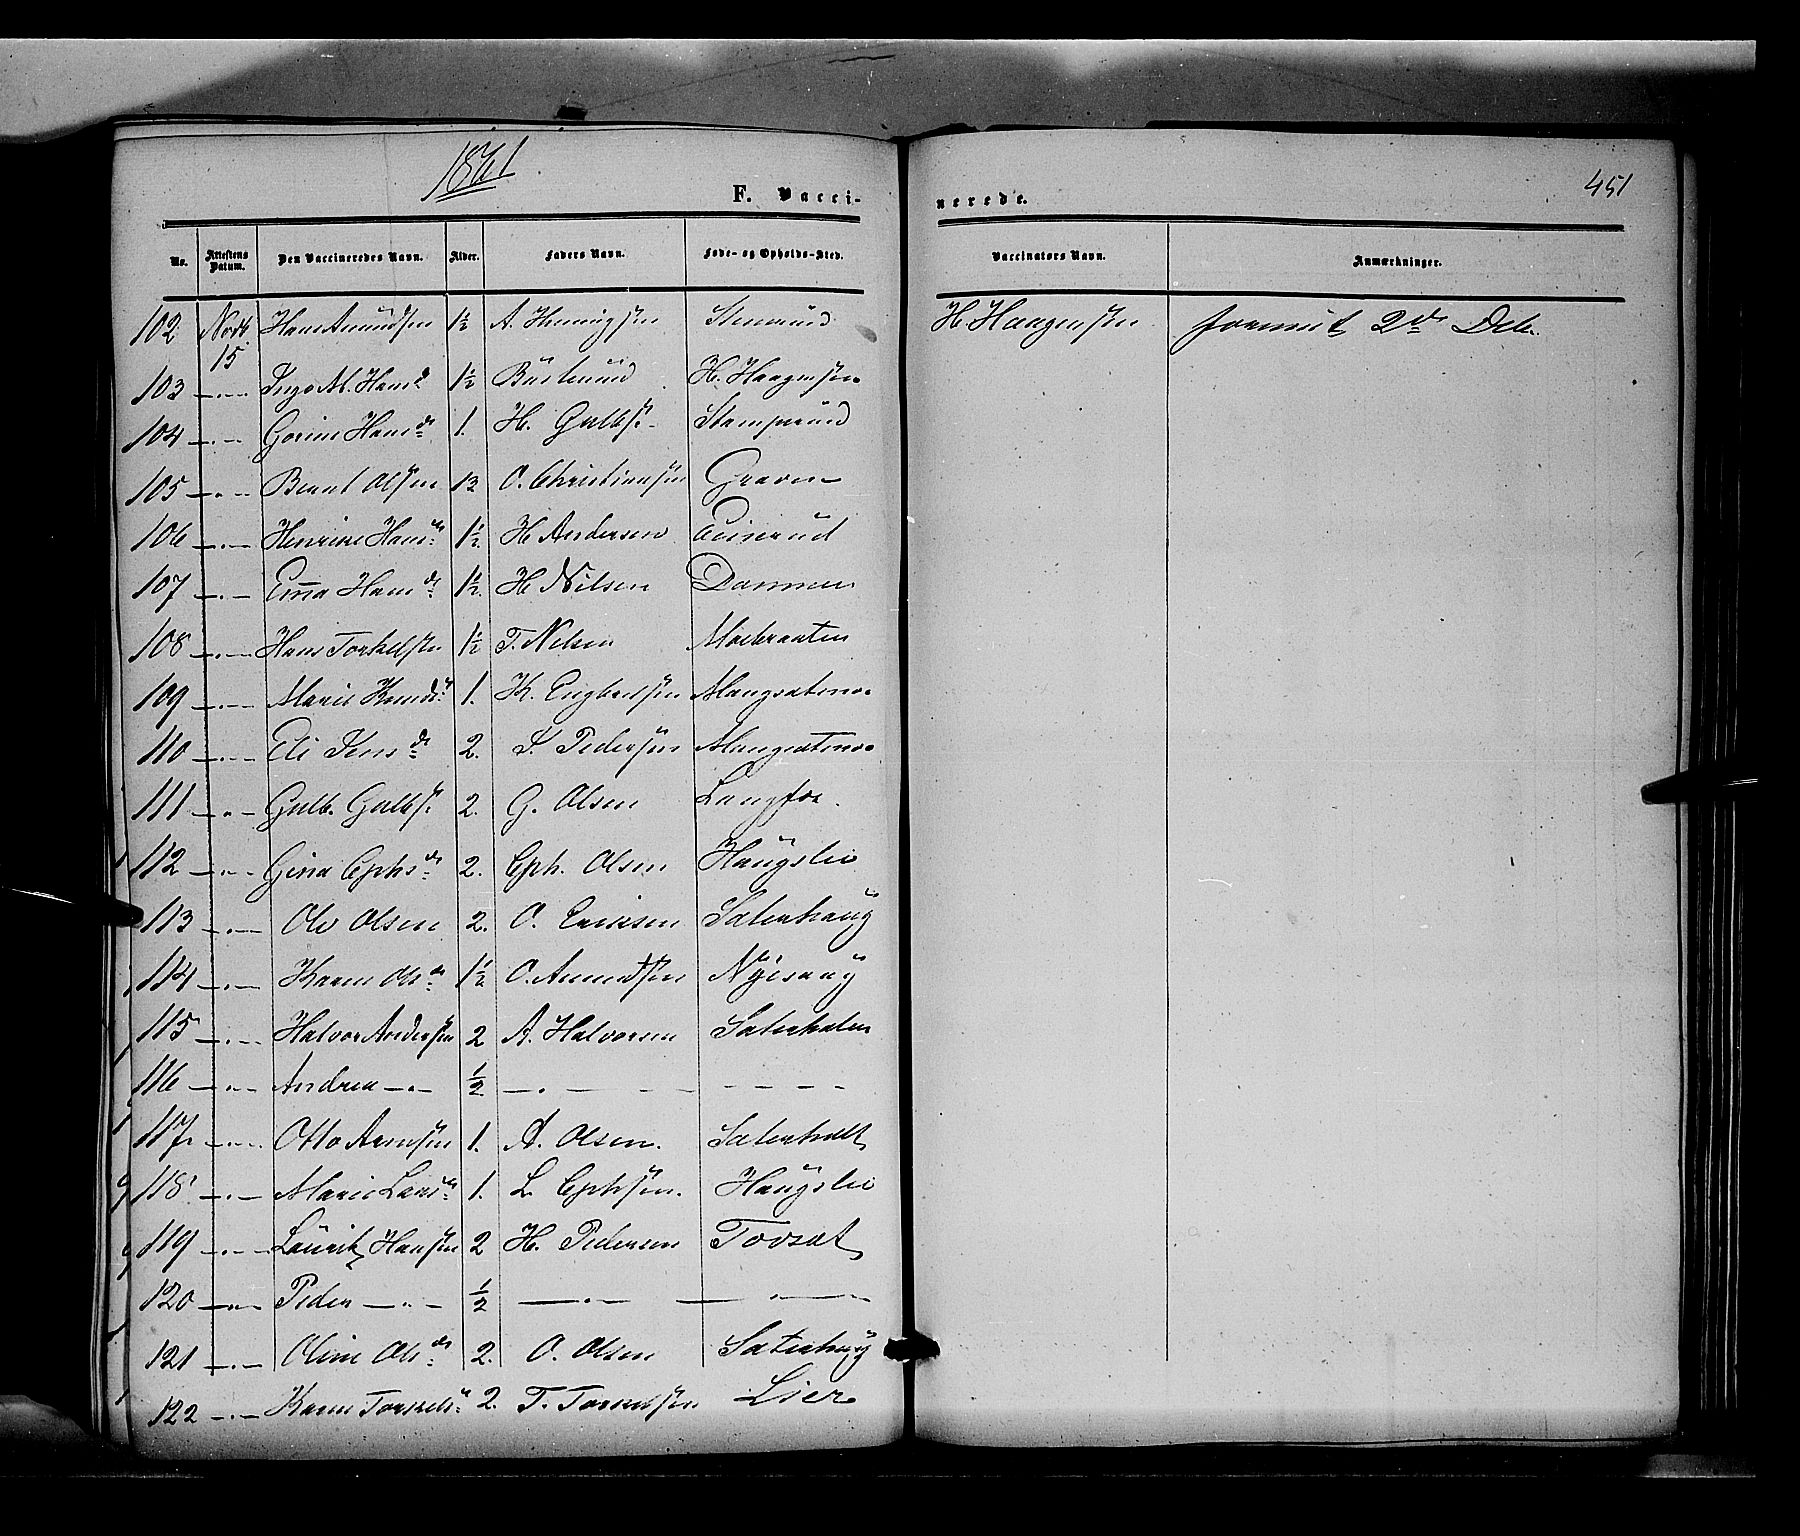 1861
F. Vacci-
nerede.
451
No. Attestens Datum. Den Vaccineredes Navn. Alder. Faders Navn. Føde- og Opholds-Sted. Vaccinators Navn. Anmærkninger.
102 Novb. 15 Hans Amundsen 1½ A. Henningsen H. Haagensen 2de
103 —„— 1½ H. Haagensen
104 —„— Gorine Hansdr 1. H. Gulbs. Stamperud
105 —„— Bernt Olsen 12 O. Christiansen Graven
106 —„— Henrine Hansdr 1½ H Andersen
107 —„— Em̅a Hansdr 1½ H Nilsen Dammen
108 —„— Hans Torkelsen 1½ T. Nilsen Moebraaten
109 —„— Marie Knudsdr 1. K. Engbretsen
110 —„— Eli Jensdr 2. J. Pedersen
111 —„— Gulb. Gulbs. 2. G. Olsen Langfos
112 —„— Gina Ephsdr 2. Eph. Olsen Haugslie
113 —„— Ole Olsen 2. O. Ericksen Saterhaug
114 —„— Karen Olsdr 1½ O. Amundsen
115 —„— Halvor Andersen 2 A. Halvorsen
116 —„— Andrea —„— ½ —„— — — — —
117 —„— Otto Arnesen 1. A. Olsen. Saterholt
118 —„— Marie Larsdr 1. L. Ephsen. Haugslie
119 —„— Lauritz Hansen 2 H. Pedersen Tovsæt
120 —„— Peder —„— ½ —„— —„—
121 —„— Oline Olsdr 2. O. Olsen Saterhaug
122 —„— Karen Torkelsdr 2. T. Torkelsen Lier